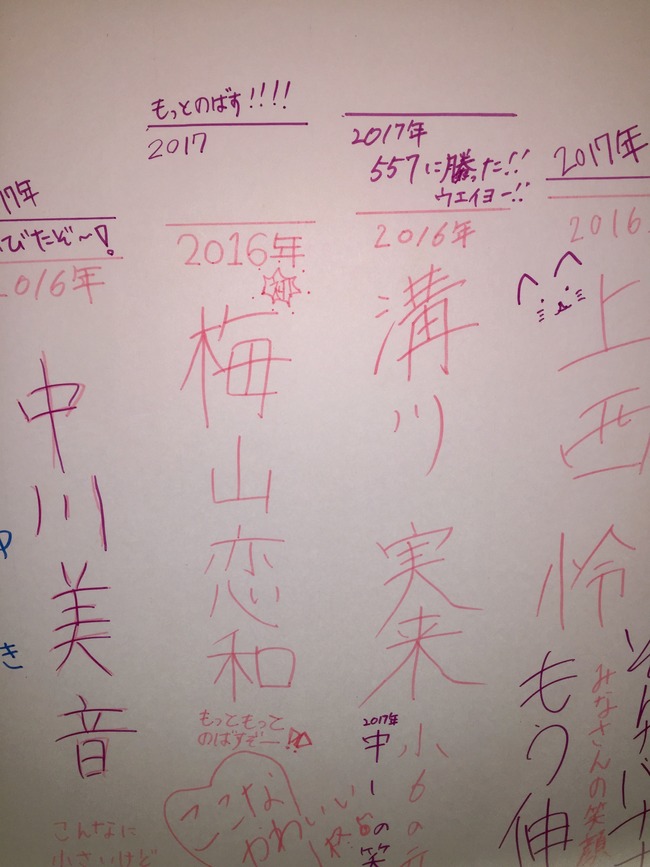 もっとのばす!!!!
2017
2016年
梅
山
恋
和
もっともっと
のばすぞー!!
ここな
かわいい
2017年
557に勝った!!
ウエイヨー!!
2016年
溝
川
実
来
2017年
中一の笑
小6の
17年
びたぞ〜!
2016年
中
川
美
音
こんなに
小さいけど
2017年
2016
上
西
怜
もう伸
みなさんの笑顔
き